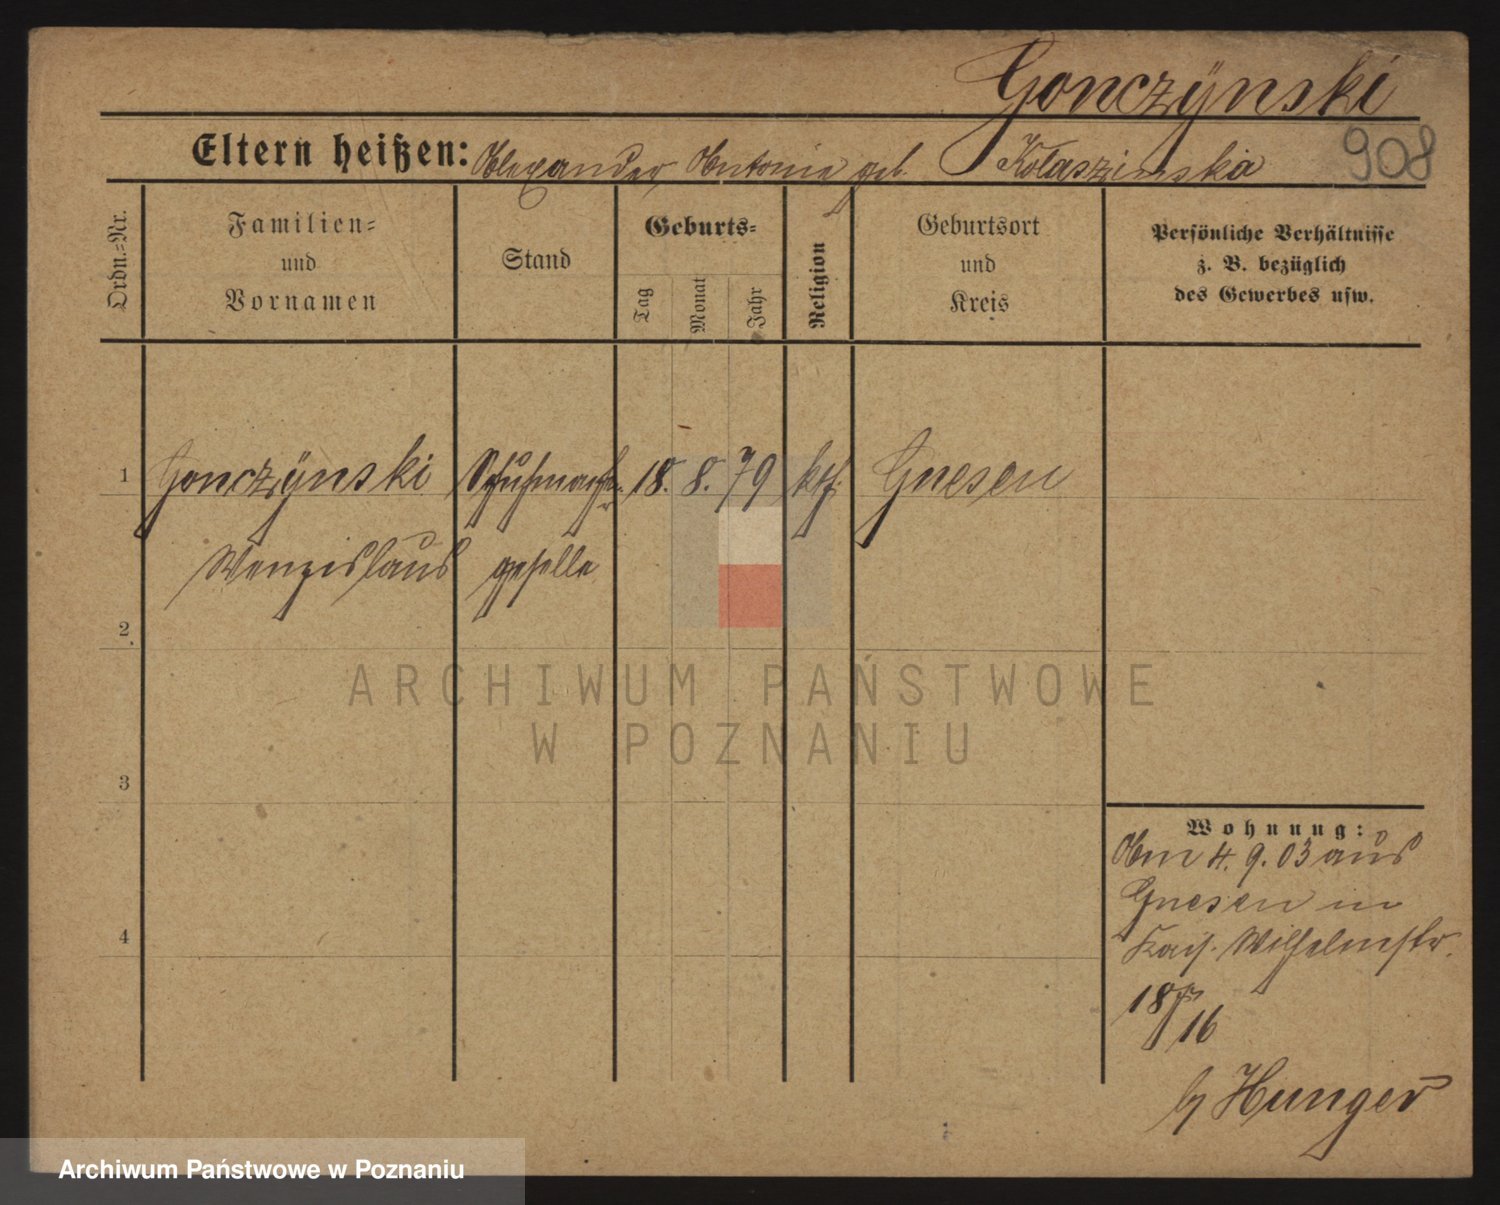 Gonczÿnski
908
Eltern heißen: Alexander, Antonie geb. Kolaszinska
Ordn.=Nr.
Familien=
und
Vornamen
Stand
Geburts=
Tag
Monat
Jahr
Religion
Geburtsort
und
Kreis
Persönliche Verhältnisse
z. B. bezüglich
des Gewerbes usw.
1 Gonczÿnski Schuhmacher 18. 8. 79 kth. Gnesen
Wenzislaus geselle
2
3
4
ARCHIWUM PAŃSTWOWE
W POZNANIU
Wohnung:
Am 4. 9. 03 aus
Gnesen in
Kais. Wilhelmstr.
16
b/ Hunger
Archiwum Państwowe w Poznaniu